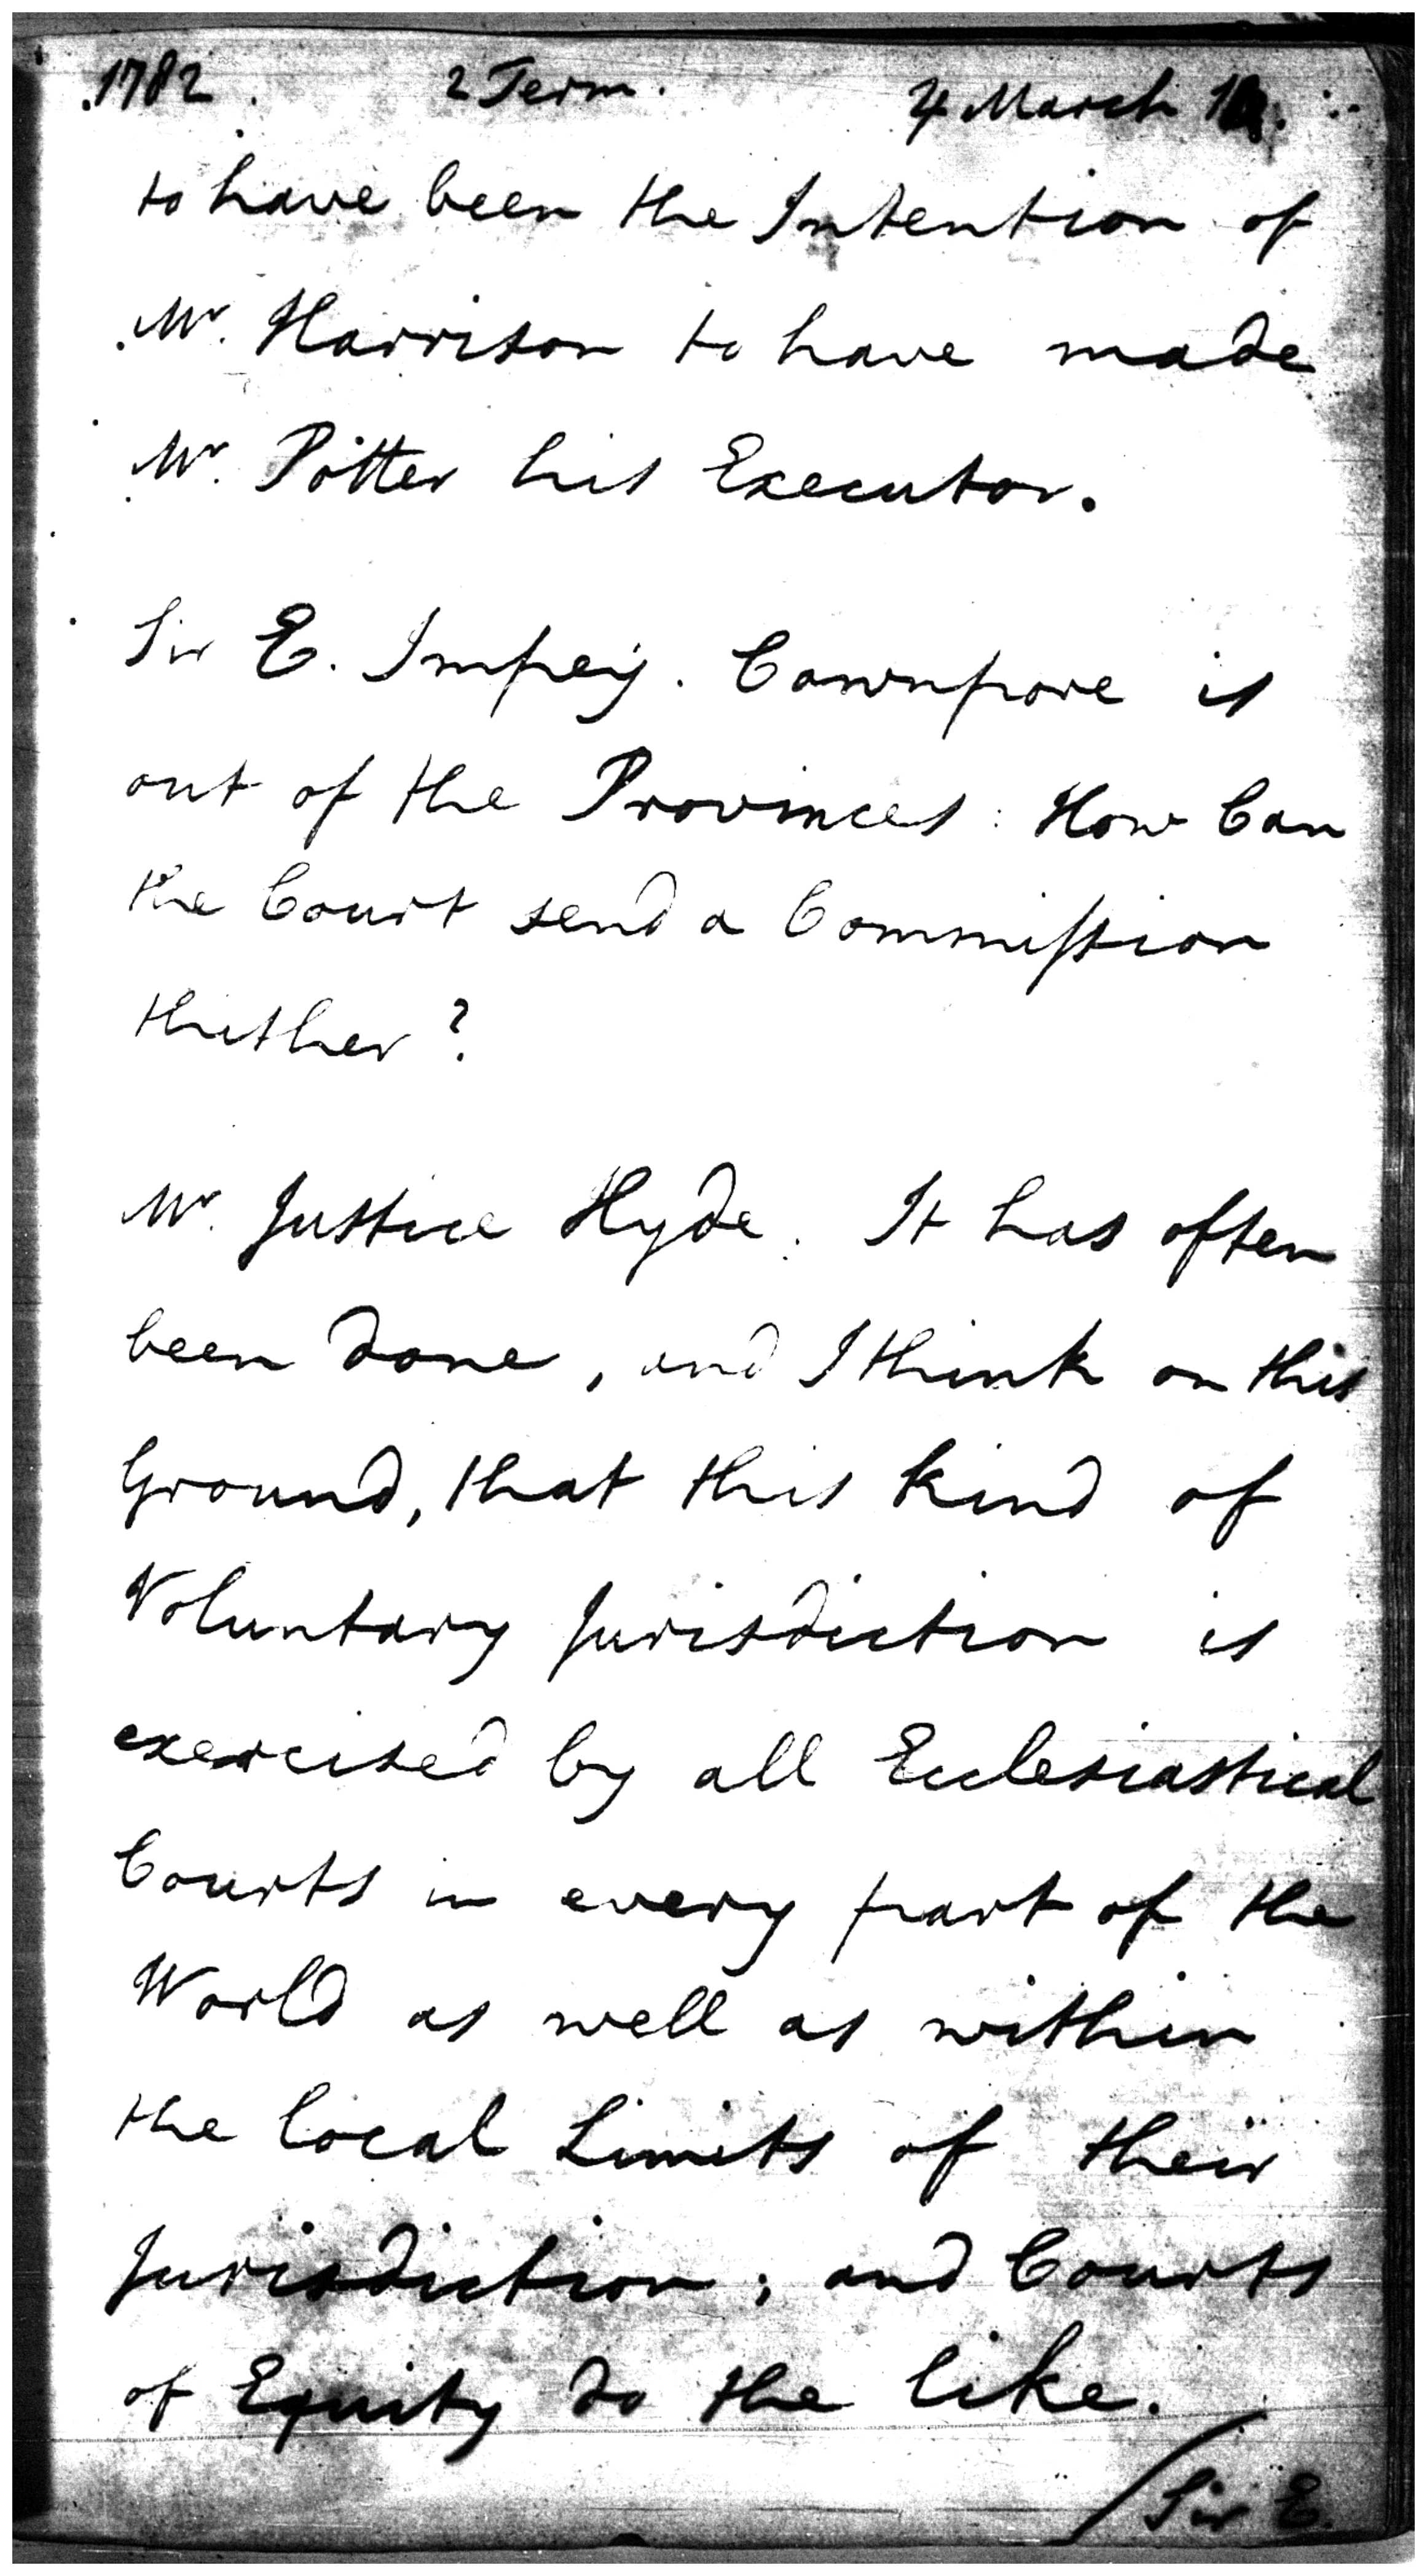 1782. 2 Term. 4 March
to have been the Intention of
Mr. Harrison to have made
Mr. Potter his Executor.
Sir E. Impey. Cawnpore is
out of the Provinces: How Can
the Court send a Commission
thither?
Mr. Justice Hyde. It has often
been done, and I think on this
Ground, that this kind of
Voluntary Jurisdiction is
exercised by all Ecclesiastical
Courts in every part of the
World as well as within
the local Limits of their
Jurisdiction; and Courts
of Equity do the like.
/Sir E.